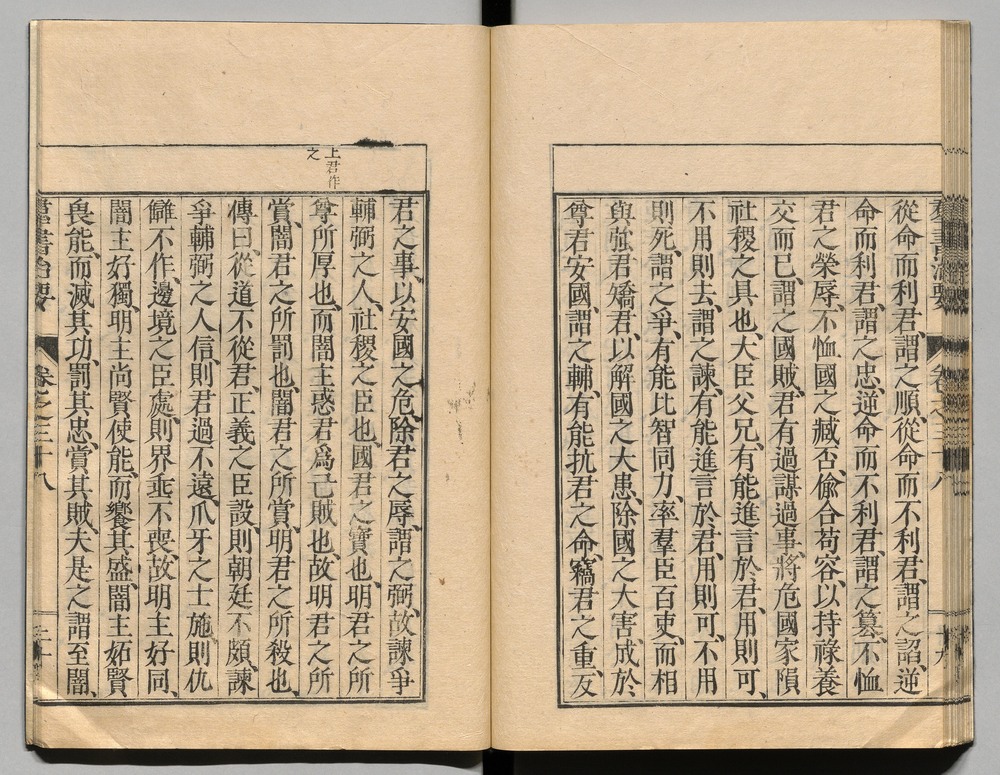 從命而利君、謂之順、從命而不利君、謂之謟、逆
命而利君、謂之忠、逆命而不利君、謂之篡、不恤
君之榮辱、不恤國之臧否、偸合苟容、以持祿養
交而已、謂之國賊、君有過謀過事、將危國家隕
社稷之具也、大臣父兄、有能進言於君、用則可、
不用則去、謂之諫、有能進言於君、用則可、不用
則死、謂之爭、有能比智同力、率羣臣百吏、而相
與強君矯君、以解國之大患、除國之大害、成於
尊君安國、謂之輔、有能抗君之命、竊君之重、反
羣書治要
卷之三十八
十九
上君作
之
君之事、以安國之危、除君之辱、謂之弼、故諫爭
輔弼之人、社稷之臣也、國君之寶也、明君之所
尊所厚也、而闇主惑君爲己賊也、故明君之所
賞、闇君之所罰也、闇君之所賞、明君之所殺也、
傳曰、從道不從君、正義之臣設、則朝廷不頗、諫
爭輔弼之人信、則君過不遠、爪牙之士施、則仇
讎不作、邊境之臣處、則界垂不喪、故明主好同、
闇主好獨、明主尚賢使能、而饗其盛、闇主妬賢
畏能、而滅其功、罰其忠、賞其賊、夫是之謂至闇、
羣書治要
卷之三十八
二十